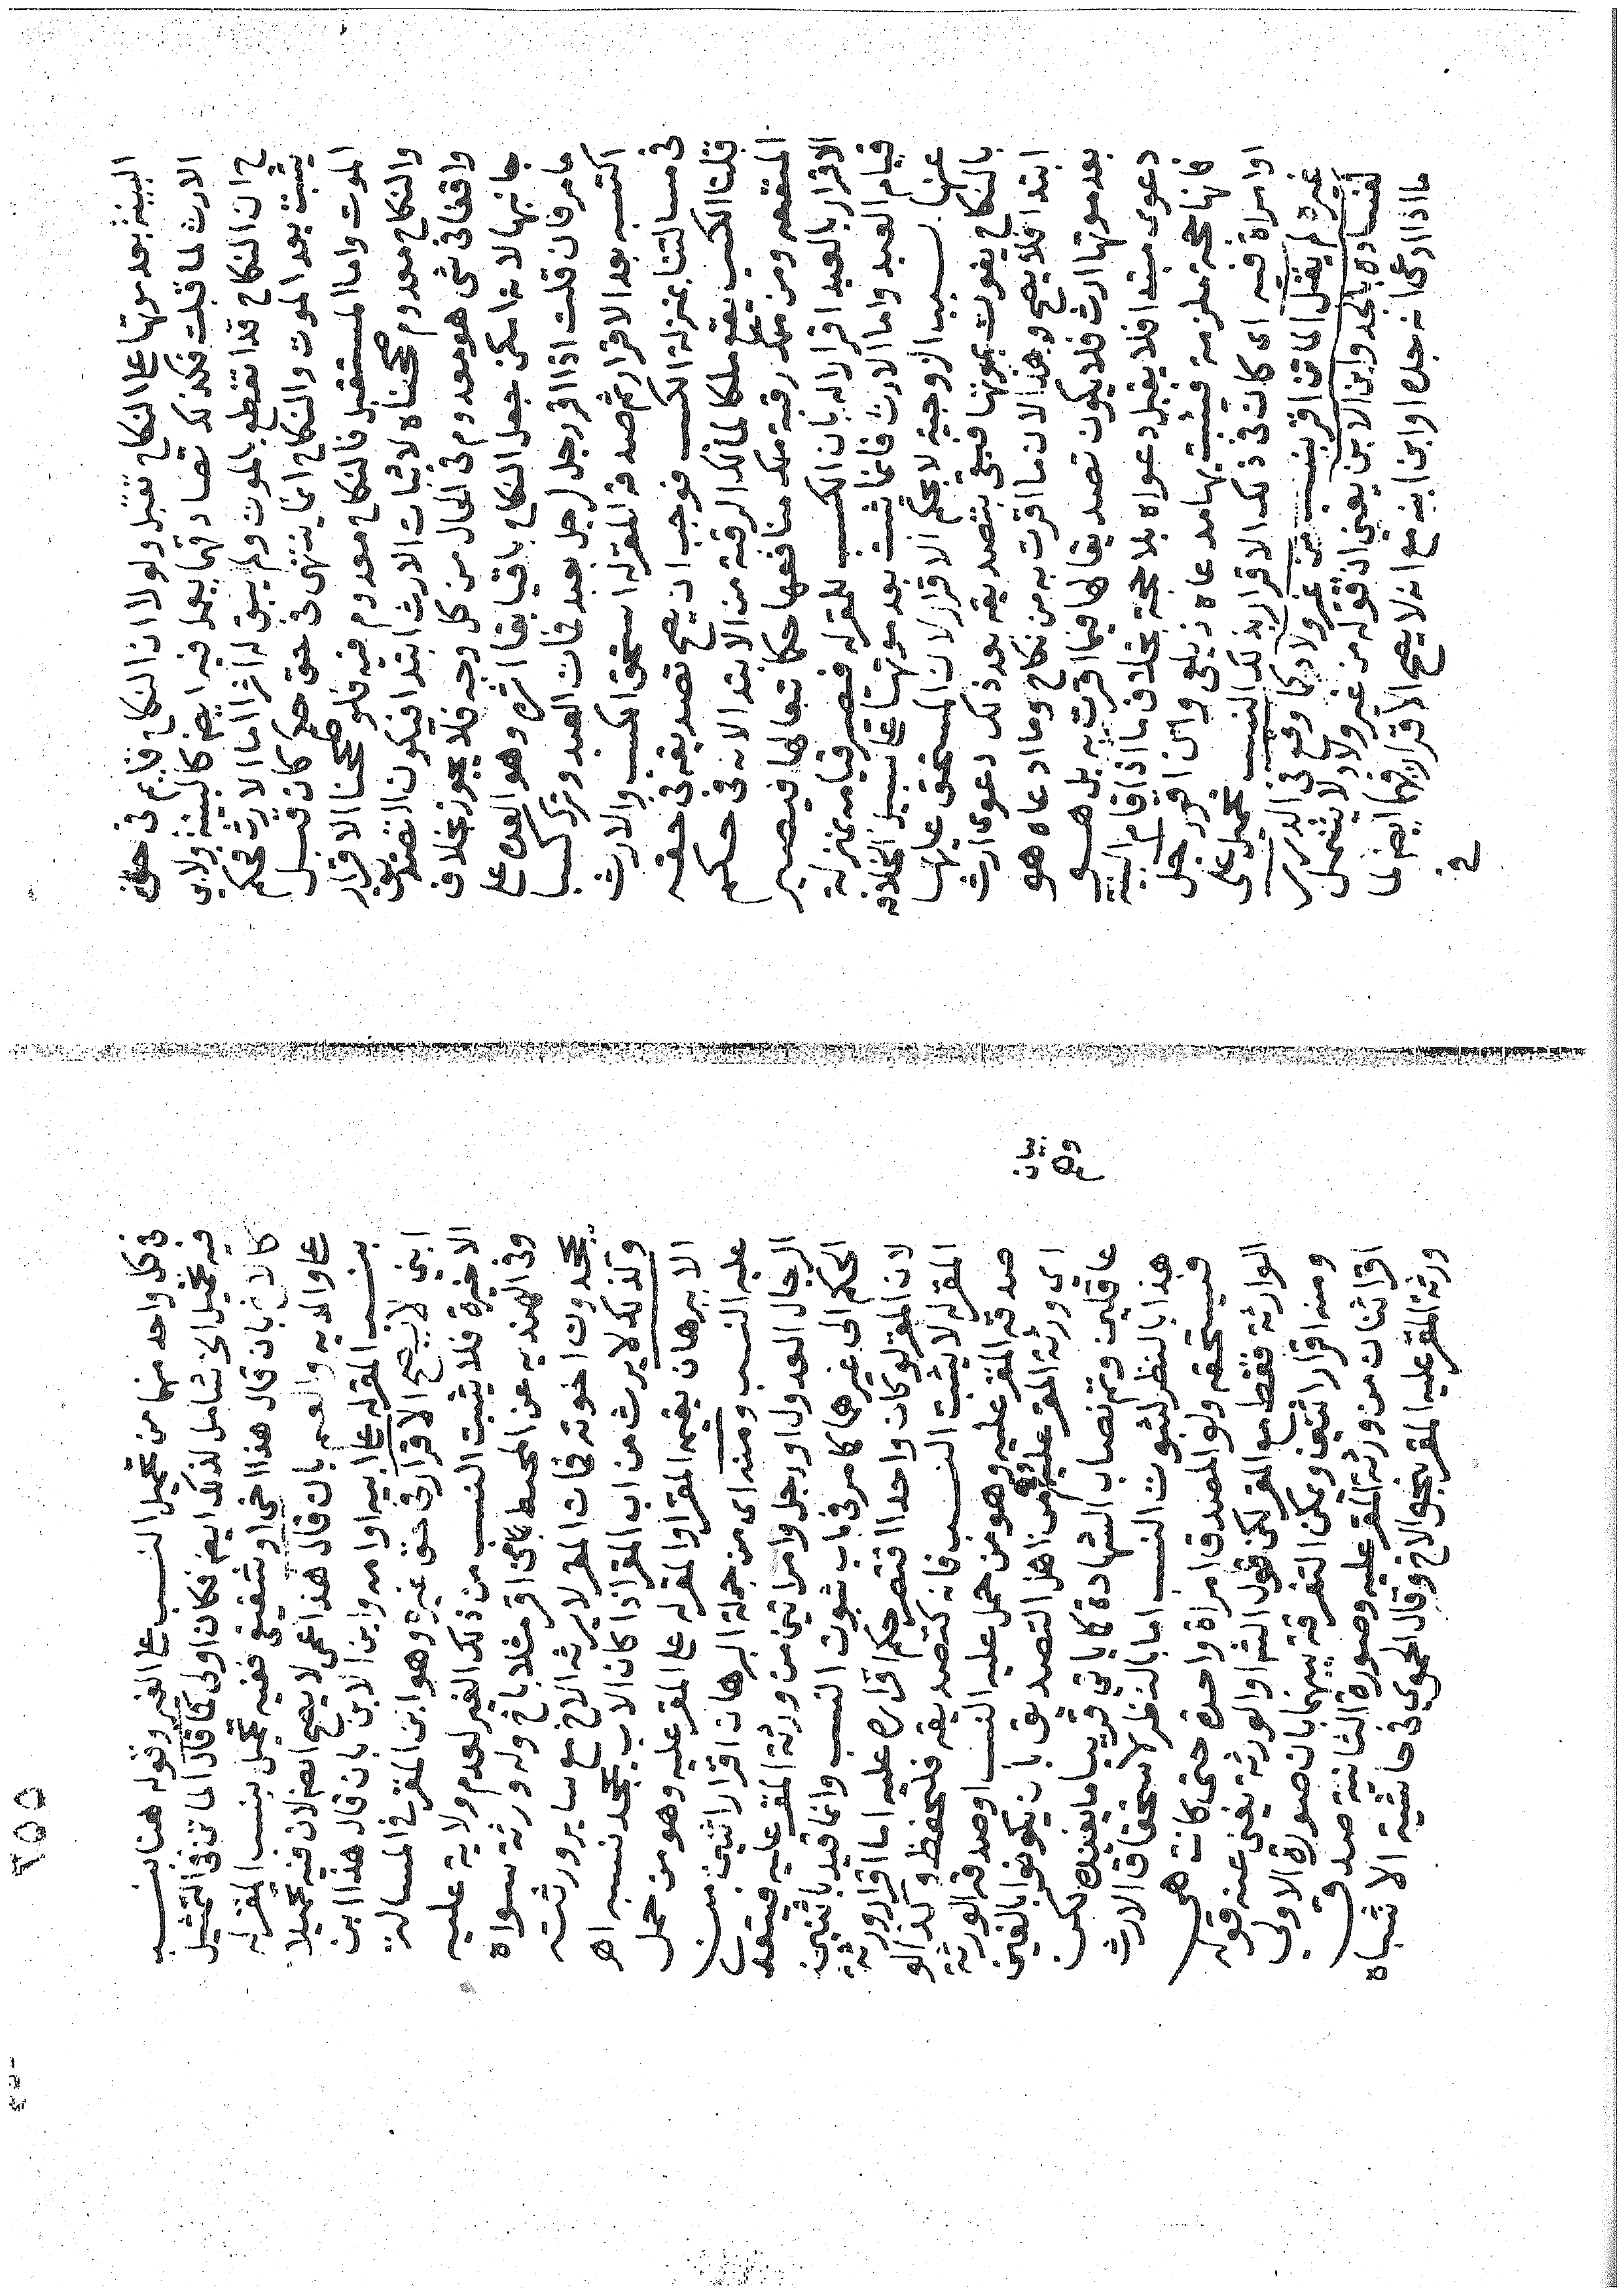 البينة بعد موتها على النكاح تقبل ولولا ان النكاح قايم فى حق
الارث لما قبلت فكذلك تصادقهما يعمل فيه ايضا كالبينة ولابى
ح ان النكاح قد انقطع بالموت ولم يبق له اثرا اما الارث فحكم
يثبت بعد الموت والنكاح انما ينتهى فى حق حكم كان قبل
الموت واما المستقبل فالنكاح معدوم فيه فلو صححنا الاقرار
والنكاح معدوم صححناه لاثبات الارث ابتدا فيكون التصديق
واقفا فى شى هو معدوم فى الحال من كل وجه فلا يجوز بخلاف
جانبها لانه امكن جعل النكاح باقيا بقا اثره وهو العدة على
ما مر فان قلت اذا اقر رجل لرجل بعبد فمات العبد وترك كسبا
اكتسبه بعد الاقرار ثم صدقه المقر له استحق الكسب والارث
فى مسالتنا بمنزلة الكسب فوجب ان يصح تصديقه فى حقه
قلنا الكسب يقع ملكا لمالك الرقبة من الابتدا لانه فى حكم
المنفعة ومن ملك رقبة ملك منافعها حكما تبعا لها فيصير
الاقرار بالعبد اقرارا له بان الكسب للمقر له فيصير قيامه بمنزلة
قيام العبد واما الارث فانما يثبت بعد موتها على سبيل الخلافة
عنها بسبب الزوجية لا بحكم الاقرار لان المستحق عليها
بالنكاح يفوت بموتها فبقى بتصديقه بعد ذلك دعوى ارث
ابتدا فلا يصح وهذا لان ما اقرت به من نكاح وما ادعاه هو
بعد موتها ارث فلا يكون تصديقا لها فيما اقرت به بل هو
دعوى مبتدا فلا يقبل دعواه بلا حجة بخلاف ما اذا اقام البينة
فانها حجة ملزمة فيثبت بها مدعاه زيلعى وان اقر رجل
او امراة فيه اى كان فى ذلك الاقرار بذلك النسب تحميل على
غيره لم يقل الماتن اقر بنسب من غير ولاد كما وقع فى الدرر
لفساده بالجد وابن الابن يعنى ان قوله من غير ولاد لا يشمل
ما اذا ادعى انه جده او ابن ابنه مع انه لا يصح الاقرار بهما ايضا لما
فى
فى كل واحد منهما من تحميل النسب على الغير وقوله هنا بنسب
فيه تحميل الخ شامل لذلك ايضا فكان اولى كما قال الماتن فى التمثيل
كالاخ بان قال هذا اخى او شقيقى ففيه تحميل بنسب المقر له
على والديه والعم بان قال هذا عمى لا يصح ايضا لان فيه تحميلا
بنسب المقر له على ابيه او امه وابن الابن بان قال هذا ابن
ابنى لا يصح الاقرار فى حق غيره وهو ابن المقر فى المسالة
الاخيرة فلا يثبت النسب من ذلك الغير لعدم ولاية عليه
وفى الهندية عن المحيط اقر مثلا باخ وله ورثة سواه
يجحدون اخوته فمات المقر لا يرثه الاخ مع ساير ورثته
وكذلك لا يرث من اب المقر اذا كان الاب يجحد نسبه اهـ
الا ببرهان يقيمه المقر او المقر له على المقر عليه وهو من حمل
عليه النسب ومنه اى من جملة البرهان اقرار اثنين من
الرجال العدول او رجل وامراتين من ورثة المقر عليه فيتعدى
الحكم الى غيرهما كما مر فى باب ثبوت النسب وانما قيد باثنين
لان المقر لو كان واحدا اقتصر حكم اقراره عليه اما اقرار ورثة
المقر له لا يثبت النسب فانه كتصديقه فليحفظ وكذا لو
صدقه المقر عليه وهو من حمل عليه النسب او صدقه الورثة
اى ورثة المقر عليه وهم من اهل التصديق بان يكونوا بالغين
عاقلين وتم نصاب الشهادة كما ياتى قريبا ما يفيده لكن
هذا بالنظر لثبوت النسب اما بالنظر لاستحقاق الارث
فيستحقه ولو المصدق امراة واحدة حتى كانت هى
الوارثة فقط مع المقر لكن قول الشر او الورثة يغنى عنه قوله
ومنه اقرار اثنين ويمكن التفرقة بينهما بان صورة الاولى
اقر اثنان من ورثة المقر عليه وصورة الثانية صدق
ورثة المقر عليه المقر بنحو الاخ وقال الحموى فى حاشية الاشباه